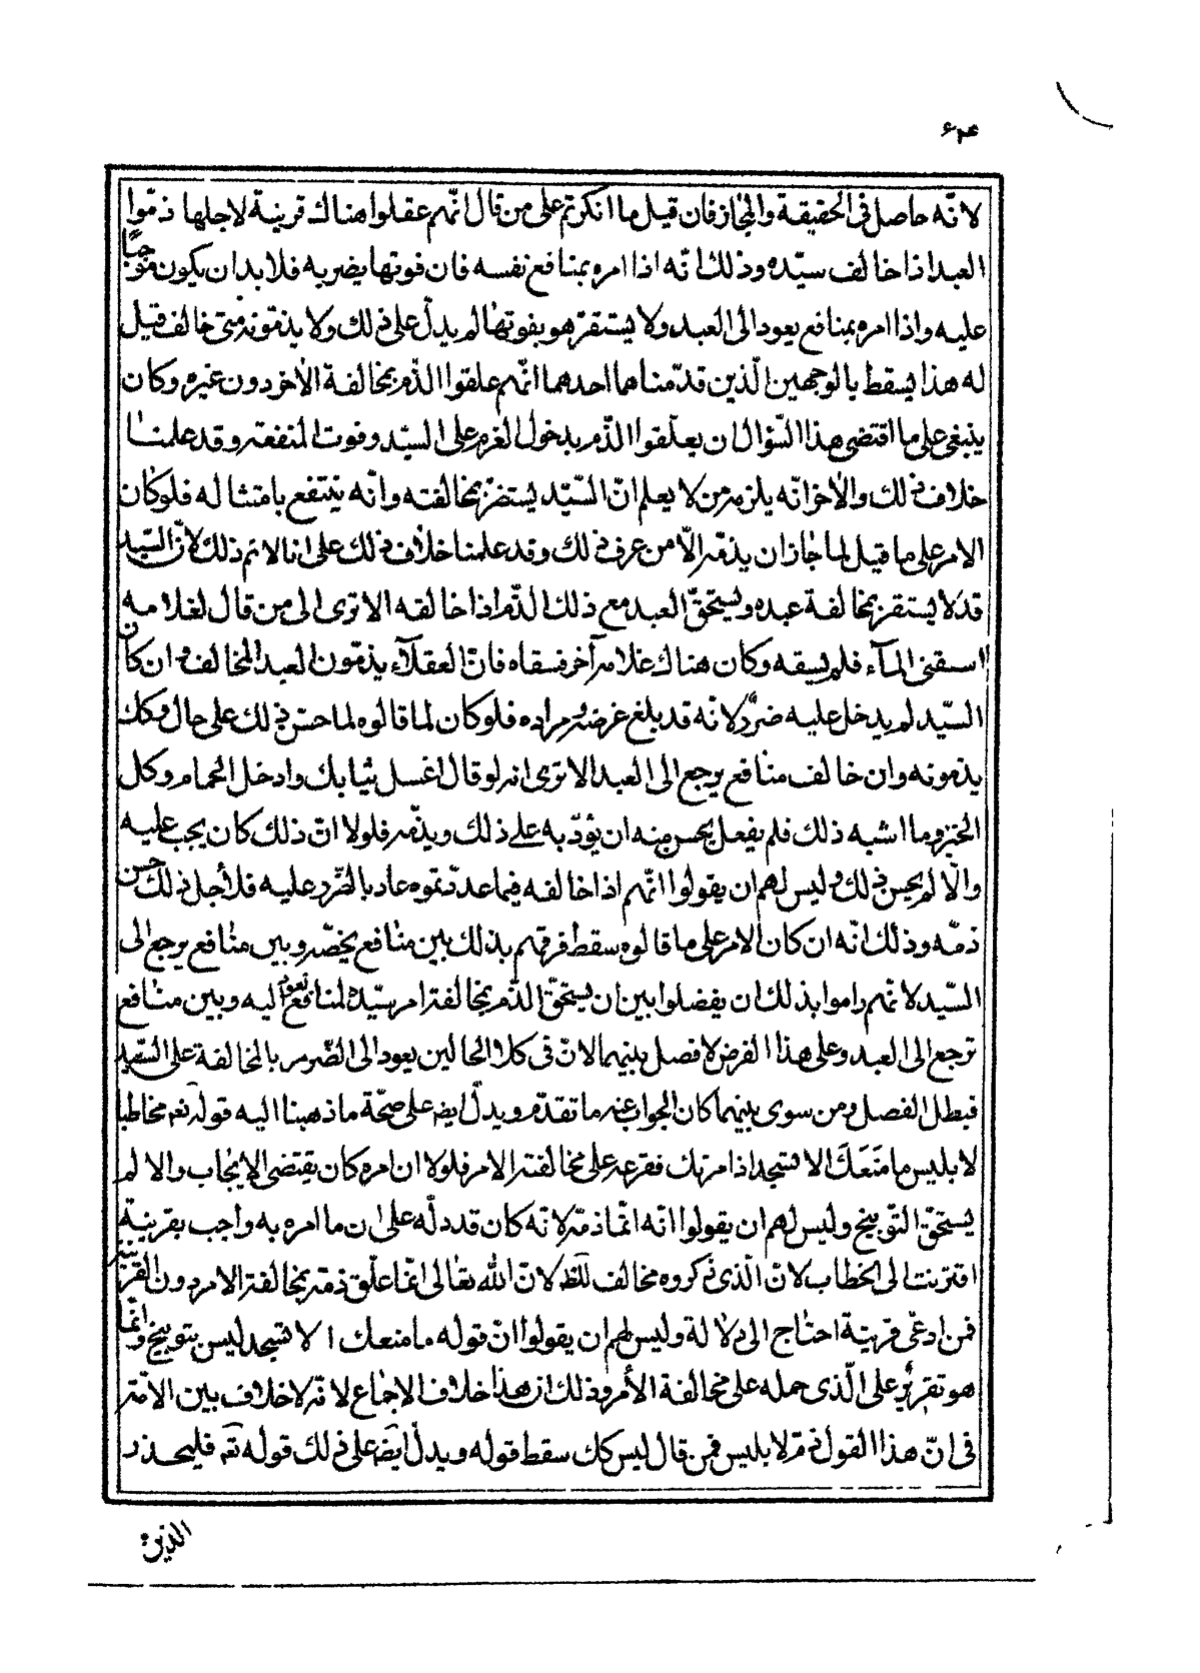 ۶۴
لانّه حاصل فى الحقيقة والمجاز فان قيل ما انكرتم على من قال انّهم عقلوا هناك قرينة لاجلها ذمّوا
العبد اذا خالف سيّده وذلك انّه اذا امره بمنافع نفسه فان فوتها يضر به فلا بد ان يكون موجبًا
عليه واذا امره بمنافع يعود الى العبد ولا يستضرّ هو بفوتها لم يدلّ على ذلك ولا يذمّونه متى خالف قيل
له هذا يسقط بالوجهين الّذين قدّمناهما احدهما انّهم علقوا الذّم بمخالفة الأخر دون غيره وكان
ينبغى على ما اقتضى هذا السّؤال ان يعلّقوا الذّم بدخول الغرم على السيّد وفوت المنفعة وقد علمنا
خلاف ذلك والأخر انّه يلزم من لا يعلم انّ السّيّد يستضر بمخالفته وانّه ينتفع بامتثاله فلو كان
الامر على ما قيل لما جاز ان يذمّه الّا من عرف ذلك وقد علمنا خلاف ذلك على انا لا تم ذلك لانّ السّيّد
قد لا يستضر بمخالفة عبده ويستحقّ العبد مع ذلك الذّم اذا خالفه الا ترى الى من قال لغلامه
اسقنى المآء فلم يسقه وكان هناك غلام آخر فسقاه فانّ العقلآء يذمّون العبد المخالف وان كان
السّيّد لم يدخل عليه ضرر لانّه قد بلغ غرضه ومراده فلو كان لما قالوه لما حسن ذلك على حال وكك
يذمونه وان خالف منافع يرجع الى العبد الا ترى انه لو قال اغسل ثيابك وادخل الحمام وكل
الخبز وما اشبه ذلك فلم يفعل يحسن منه ان يؤدّبه على ذلك ويذمّه فلولا انّ ذلك كان يجب عليه
والّا لم يحسن ذلك وليس لهم ان يقولوا انّهم اذا خالفه فيما عددتموه عاد بالضّرر عليه فلأجل ذلك حسن
ذمّه وذلك انّه ان كان الامر على ما قالوه سقط فرقهم بذلك بين منافع يخصّه وبين منافع يرجع الى
السّيّد لانّهم راموا بذلك ان يفصلوا بين ان يستحقّ الذّم بمخالفة امر سيّده لمنافع تعود اليه وبين منافع
ترجع الى العبد وعلى هذا الفرض لا فصل بينهما لانّ فى كلا الحالين يعود الى الضّرر بالمخالفة على السّيّد
فبطل الفصل ومن سوى بينهما كان الجواب عنه ما تقدّم ويدلّ ايضه على صحّة ما ذهبنا اليه قوله تعه مخاطبا
لابليس ما مَنَعَكَ الا تسجد اذ امرتك فقرعه على مخالفته الامر فلولا ان امره كان يقتضى الإيجاب والا لم
يستحقّ التّوبيخ وليس لهم ان يقولوا انّه انّما ذمّه لانّه كان قد دلّه على ان ما امره به واجب بقرينة
اقترنت الى الخطاب لانّ الّذى ذكروه مخالف للظ لانّ الله تعالى انّما علّق ذمّه بمخالفة الامر دون القرينة
فمن ادعّى قرينة احتاج الى دلالة وليس لهم ان يقولوا انّ قوله ما منعك الا تسجد ليس بتوبيخ وانّما
هو تقرير على الّذى حمله على مخالفة الأمر وذلك ان هذا خلاف الاجماع لانّه لا خلاف بين الامّة
فى انّ هذا القول ذمّ لابليس فمن قال ليس كك سقط قوله ويدلّ ايضه على ذلك قوله تعه فليحذر
الذين